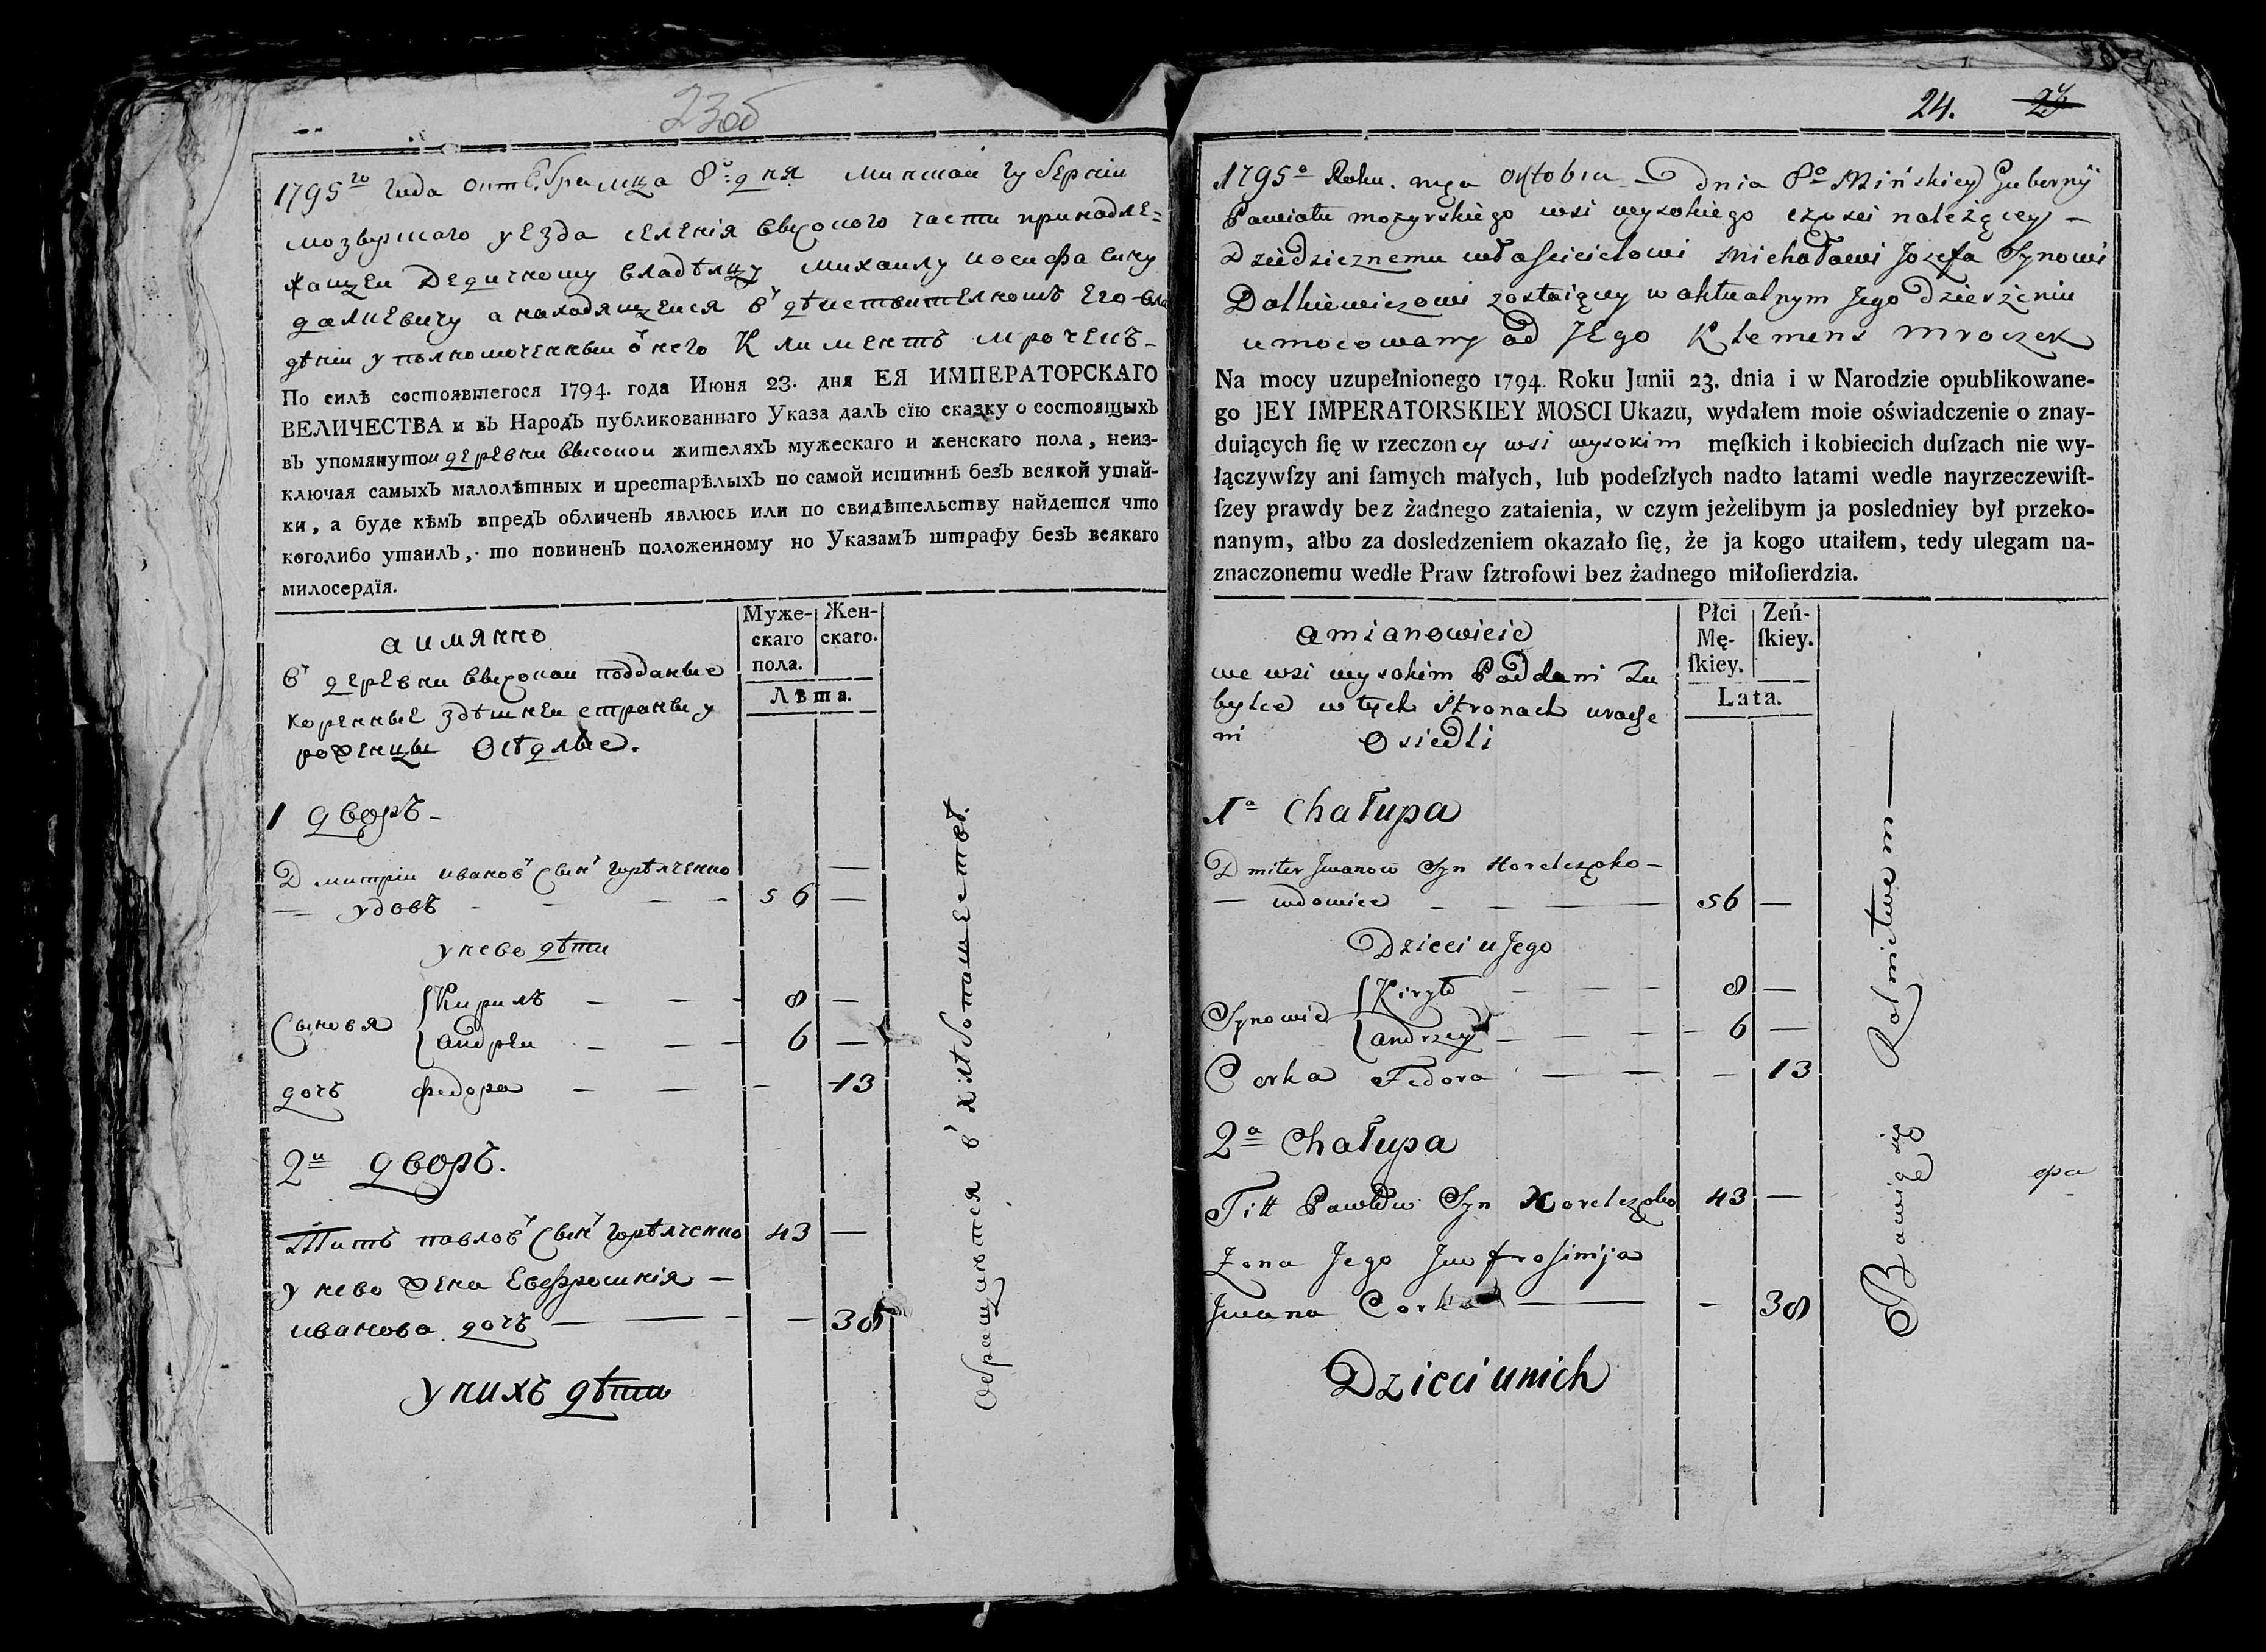 23об
1795го года октебра мца 8го дня минской губернiи
мозырскаго уезда селенiя высокого части принадле=
жащеи Дедичному владѣлцу михаилу иосифа сину
далкевичу а находящеися в дѣиствителномъ его вла
дѣнiи уполномоченныи о него Климентъ мрочекъ
По силѣ состоявшегося 1794. года Июня 23. дня ЕЯ ИМПЕРАТОРСКАГО
ВЕЛИЧЕСТВА и вЪ НародЪ публикованнаго Указа далЪ сїю сказку о состоящыхЪ
вЪ упомянутои деревни высокои жителяхЪ мужескаго и женскаго пола, неиз-
ключая самыхЪ малолѣтныхЪ и престарѣлыхЪ по самой истиннѣ безЪ всякой утай-
ки, а буде кѣмЪ впредЪ обличенЪ явлюсь или по свидѣтельству найдется что
коголибо утаилЪ, то повиненЪ положенному по УказамЪ штрафу безЪ всякаго
милосердїя.
Муже-
скаго
пола.
Жен-
скаго.
Лѣта.
а имянно
в деревни высокои подданые
коренные здѣшнеи страны у
роженцы Осѣдлые.
1 дворъ
Дмитрiи иванов сын горѣлченко
— удовъ - - — - 56 —
у нево дѣти
Сыновя
Кирилъ - — - 8 —
андреи - — - 6 —
дочь федора - — - 13
2и дворъ.
Титъ павлов сын горѣлченко 43 —
у нево жена Евфрошнiя —
иванова дочь — — - — 38
у нихъ дѣти
Обращаются в хлѣбопашествѣ.
24. 27
1795o Roku. mca Oktobra dnia 8o Mińskiey Gubernij
Powiatu mozyrskiego wsi wysokiego częsci należącey
Dziedzicznemu właścicielowi Michałowi Jozefa Synowi
Dalkiewiczowi zostaiący w aktualnym Jego dzierżeniu
umocowany od JEgo Klemens Mroczek
Na mocy uzupełnionego 1794. Roku Junii 23. dnia i w Narodzie opublikowane-
go JEY IMPERATORSKIEY MOSCI Ukazu, wydałem moie oświadczenie o znay-
duiących ſię w rzeczoney wsi wysokim męſkich i kobiecich duſzach nie wy-
łączywſzy ani ſamych małych, lub podeſzłych nadto latami wedle nayrzeczewiſt-
ſzey prawdy bez żadnego zataienia, w czym jeżelibym ja posledniey był przeko-
nanym, albo za dosledzeniem okazało ſię, że ja kogo utaiłem, tedy ulegam na-
znaczonemu wedle Praw ſztrofowi bez żadnego miłoſierdzia.
Płci
Mę-
ſkiey.
Zeń-
ſkiey.
Lata.
amianowicie
we wsi wysokim Poddani Tu
bylce w tych stronach urodze
ni Osiedli
1a Chałupa
Dmiter Jwanow Syn Horelczęko —
— wdowiec - - — — 56 —
Dzieci u Jego
Synowie
Kiryło - — - 8 —
andrzey - — - 6 —
Corka Fedora — — - 13
2a Chałupa
Titt Pawłow Syn Horelczęko 43 —
Zona Jego Jwfrosimija
Jwana Corka — - 38
Dzieci unich
Bawią się Rolnictwem —
ера